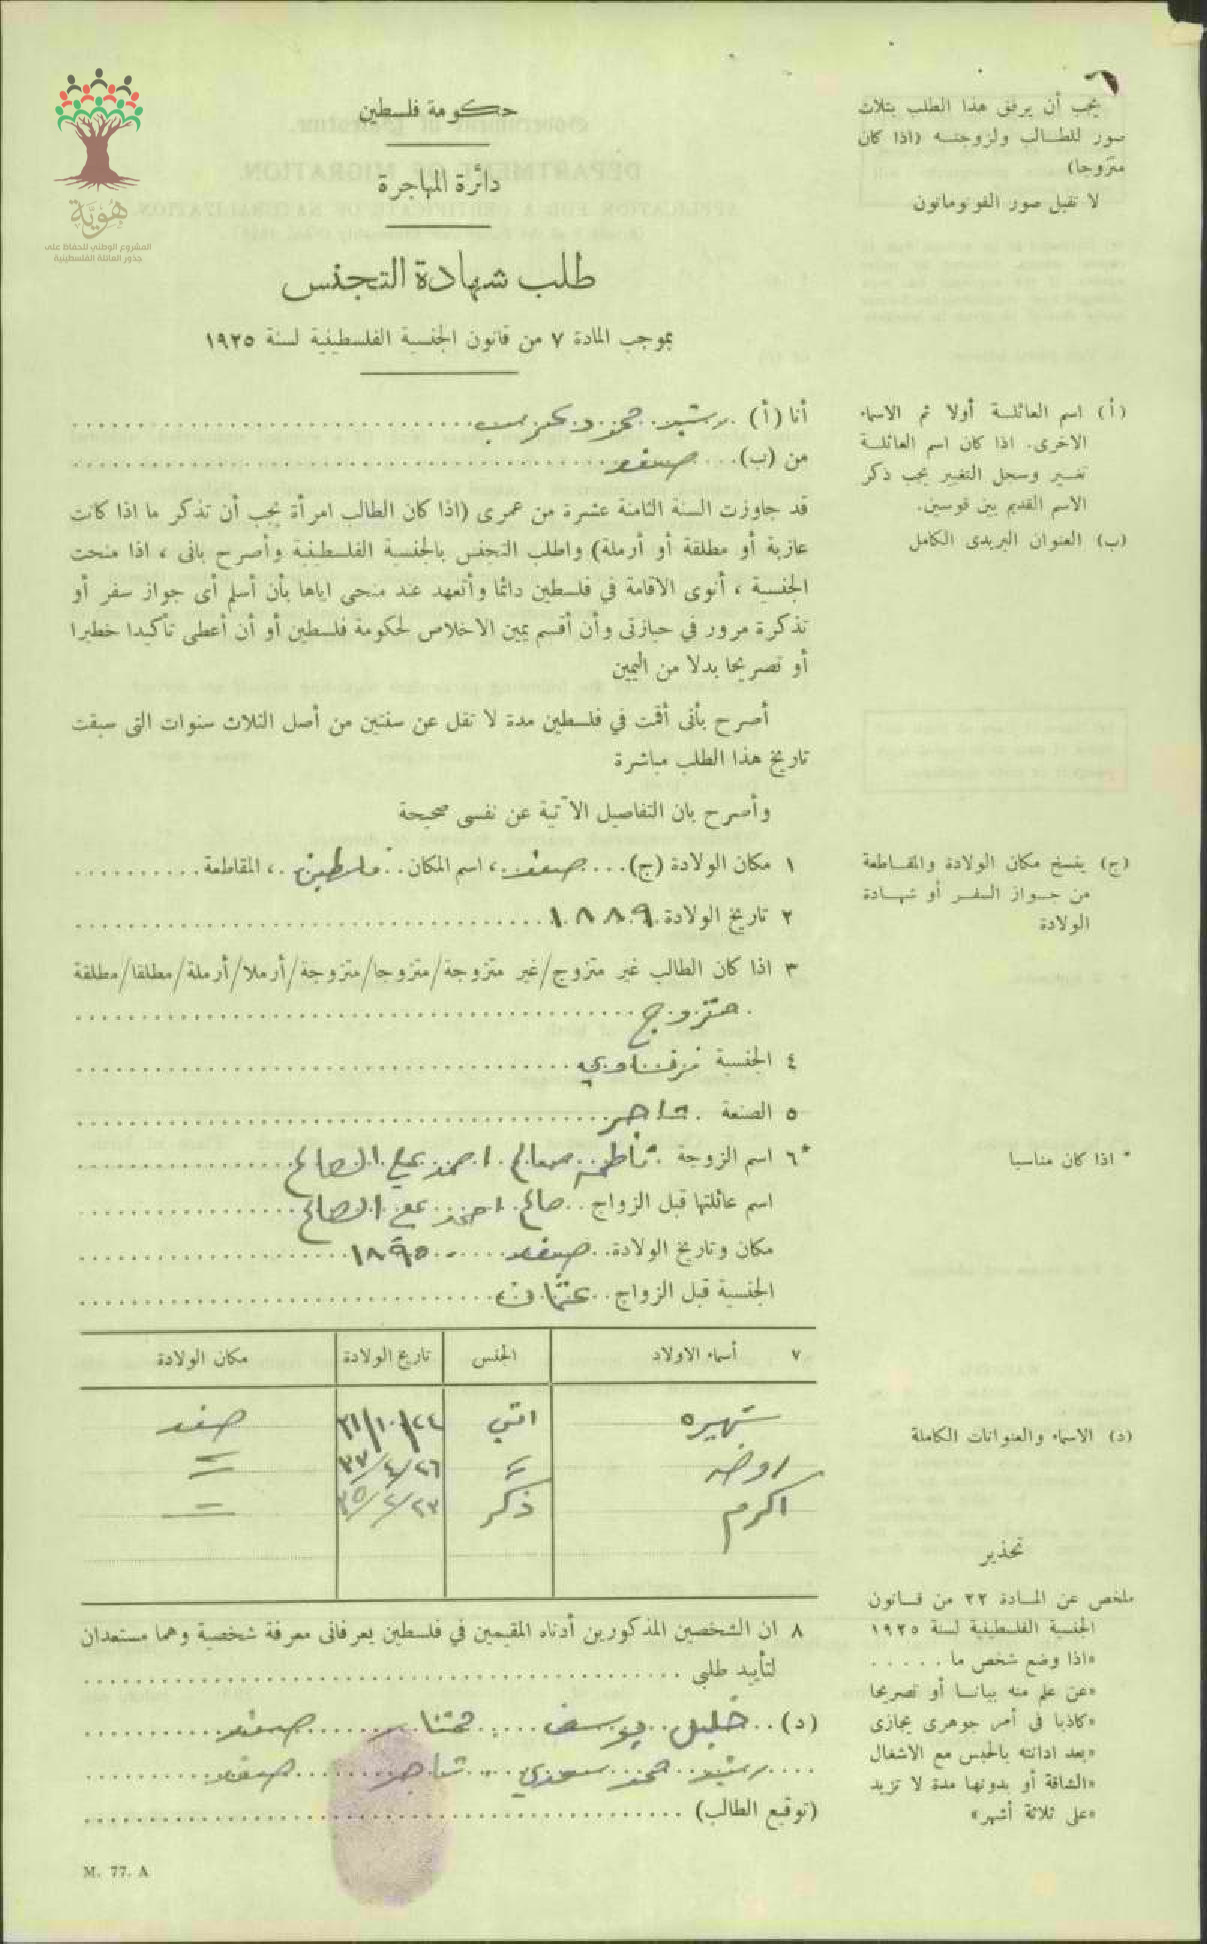 يجب أن يرفق هذا الطلب بثلاث
صور للطالب ولزوجته (اذا كان
متزوجا)
لا تقبل صور الفوتوماتون
هُوِيَّة
المشروع الوطني للحفاظ على
جذور العائلة الفلسطينية
حكومة فلسطين
دائرة المهاجرة
طلب شهادة التجنس
بموجب المادة ٧ من قانون الجنسية الفلسطينية لسنة ١٩٢٥
(أ) اسم العائلة أولا ثم الاسماء
الاخرى. اذا كان اسم العائلة
تغير وسجل التغيير يجب ذكر
الاسم القديم بين قوسين.
(ب) العنوان البريدى الكامل
أنا (أ) رشيد محمود
من (ب) صفد
قد جاوزت السنة الثامنة عشرة من عمرى (اذا كان الطالب امرأة يجب أن تذكر ما اذا كانت
عازبة أو مطلقة أو أرملة) واطلب التجنس بالجنسية الفلسطينية وأصرح بانى ، اذا منحت
الجنسية ، أنوى الاقامة في فلسطين دائما وأتعهد عند منحى اياها بأن أسلم أى جواز سفر أو
تذكرة مرور في حيازتى وأن أقسم يمين الاخلاص لحكومة فلسطين أو أن أعطى تأكيدا خطيرا
أو تصريحا بدلا من اليمين
أصرح بأنى أقمت في فلسطين مدة لا تقل عن سنتين من أصل الثلاث سنوات التى سبقت
تاريخ هذا الطلب مباشرة
وأصرح بان التفاصيل الآتية عن نفسى صحيحة
(ج) ينسخ مكان الولادة والمقاطعة
من جواز السفر أو شهادة
الولادة
١ مكان الولادة (ج) صفد ، اسم المكان فلسطين ، المقاطعة
٢ تاريخ الولادة ١٨٨٩
٣ اذا كان الطالب غير متزوج/غير متزوجة/متزوجا/متزوجة/أرملا/أرملة/مطلقا/مطلقة
متزوج
٤ الجنسية
٥ الصنعة تاجر
*٦ اسم الزوجة فاطمه صالح احمد علي الصالح
* اذا كان مناسبا
اسم عائلتها قبل الزواج صالح احمد علي الصالح
مكان وتاريخ الولادة صفد - ١٨٩٥
الجنسية قبل الزواج
٧ أسماء الاولاد الجنس تاريخ الولادة مكان الولادة
شهيره انثي ٣١/١٠/٢٤ صفد
= ٢٦/٤/٣٧ =
اكرم ذكر =
(د) الاسماء والعنوانات الكاملة
تحذير
ملخص عن المادة ٢٢ من قانون
الجنسية الفلسطينية لسنة ١٩٢٥
«اذا وضع شخص ما .....
«عن علم منه بيانا أو تصريحا
«كاذبا فى أمر جوهرى يجازى
«بعد ادانته بالحبس مع الاشغال
«الشاقة أو بدونها مدة لا تزيد
«على ثلاثة أشهر»
٨ ان الشخصين المذكورين أدناه المقيمين في فلسطين يعرفانى معرفة شخصية وهما مستعدان
لتأييد طلبى
(د) خليل يوسف مختار صفد
رشيد سعدي تاجر صفد
(توقيع الطالب)
M. 77. A